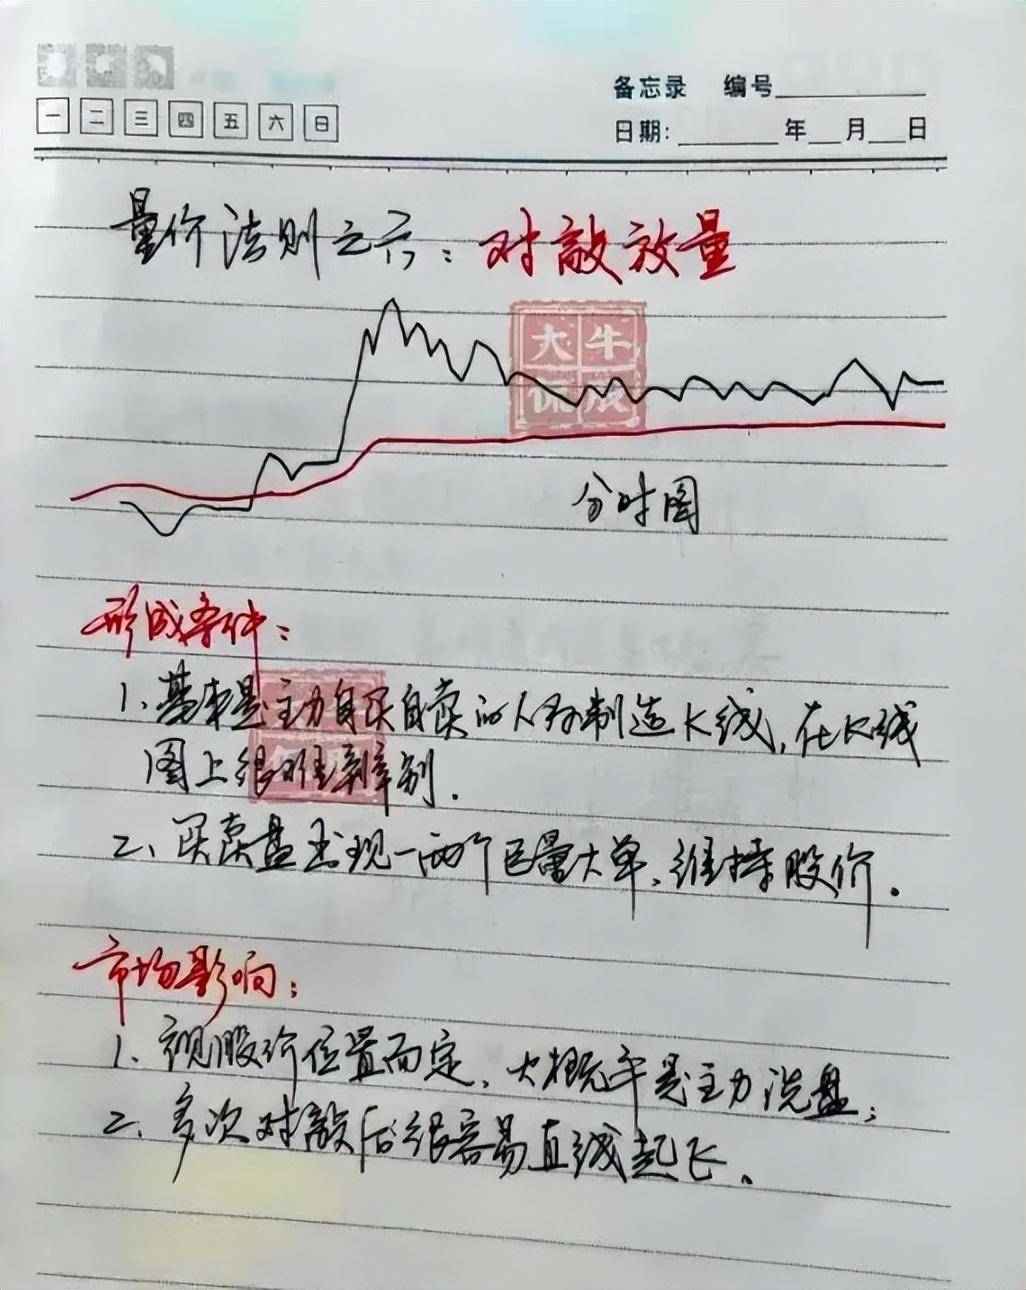 备忘录 编号
一 二 三 四 五 六 日
日期: 年 月 日
量价法则之六：对敲放量
大牛
侃股
分时图
形成条件：
1、基本是主力自买自卖的人为制造K线，在K线
图上很难辨别．
2、买卖盘出现一两个巨量大单、维持股价．
市场影响：
1、视股价位置而定、大概率是主力洗盘；
2、多次对敲后很容易直线起飞。